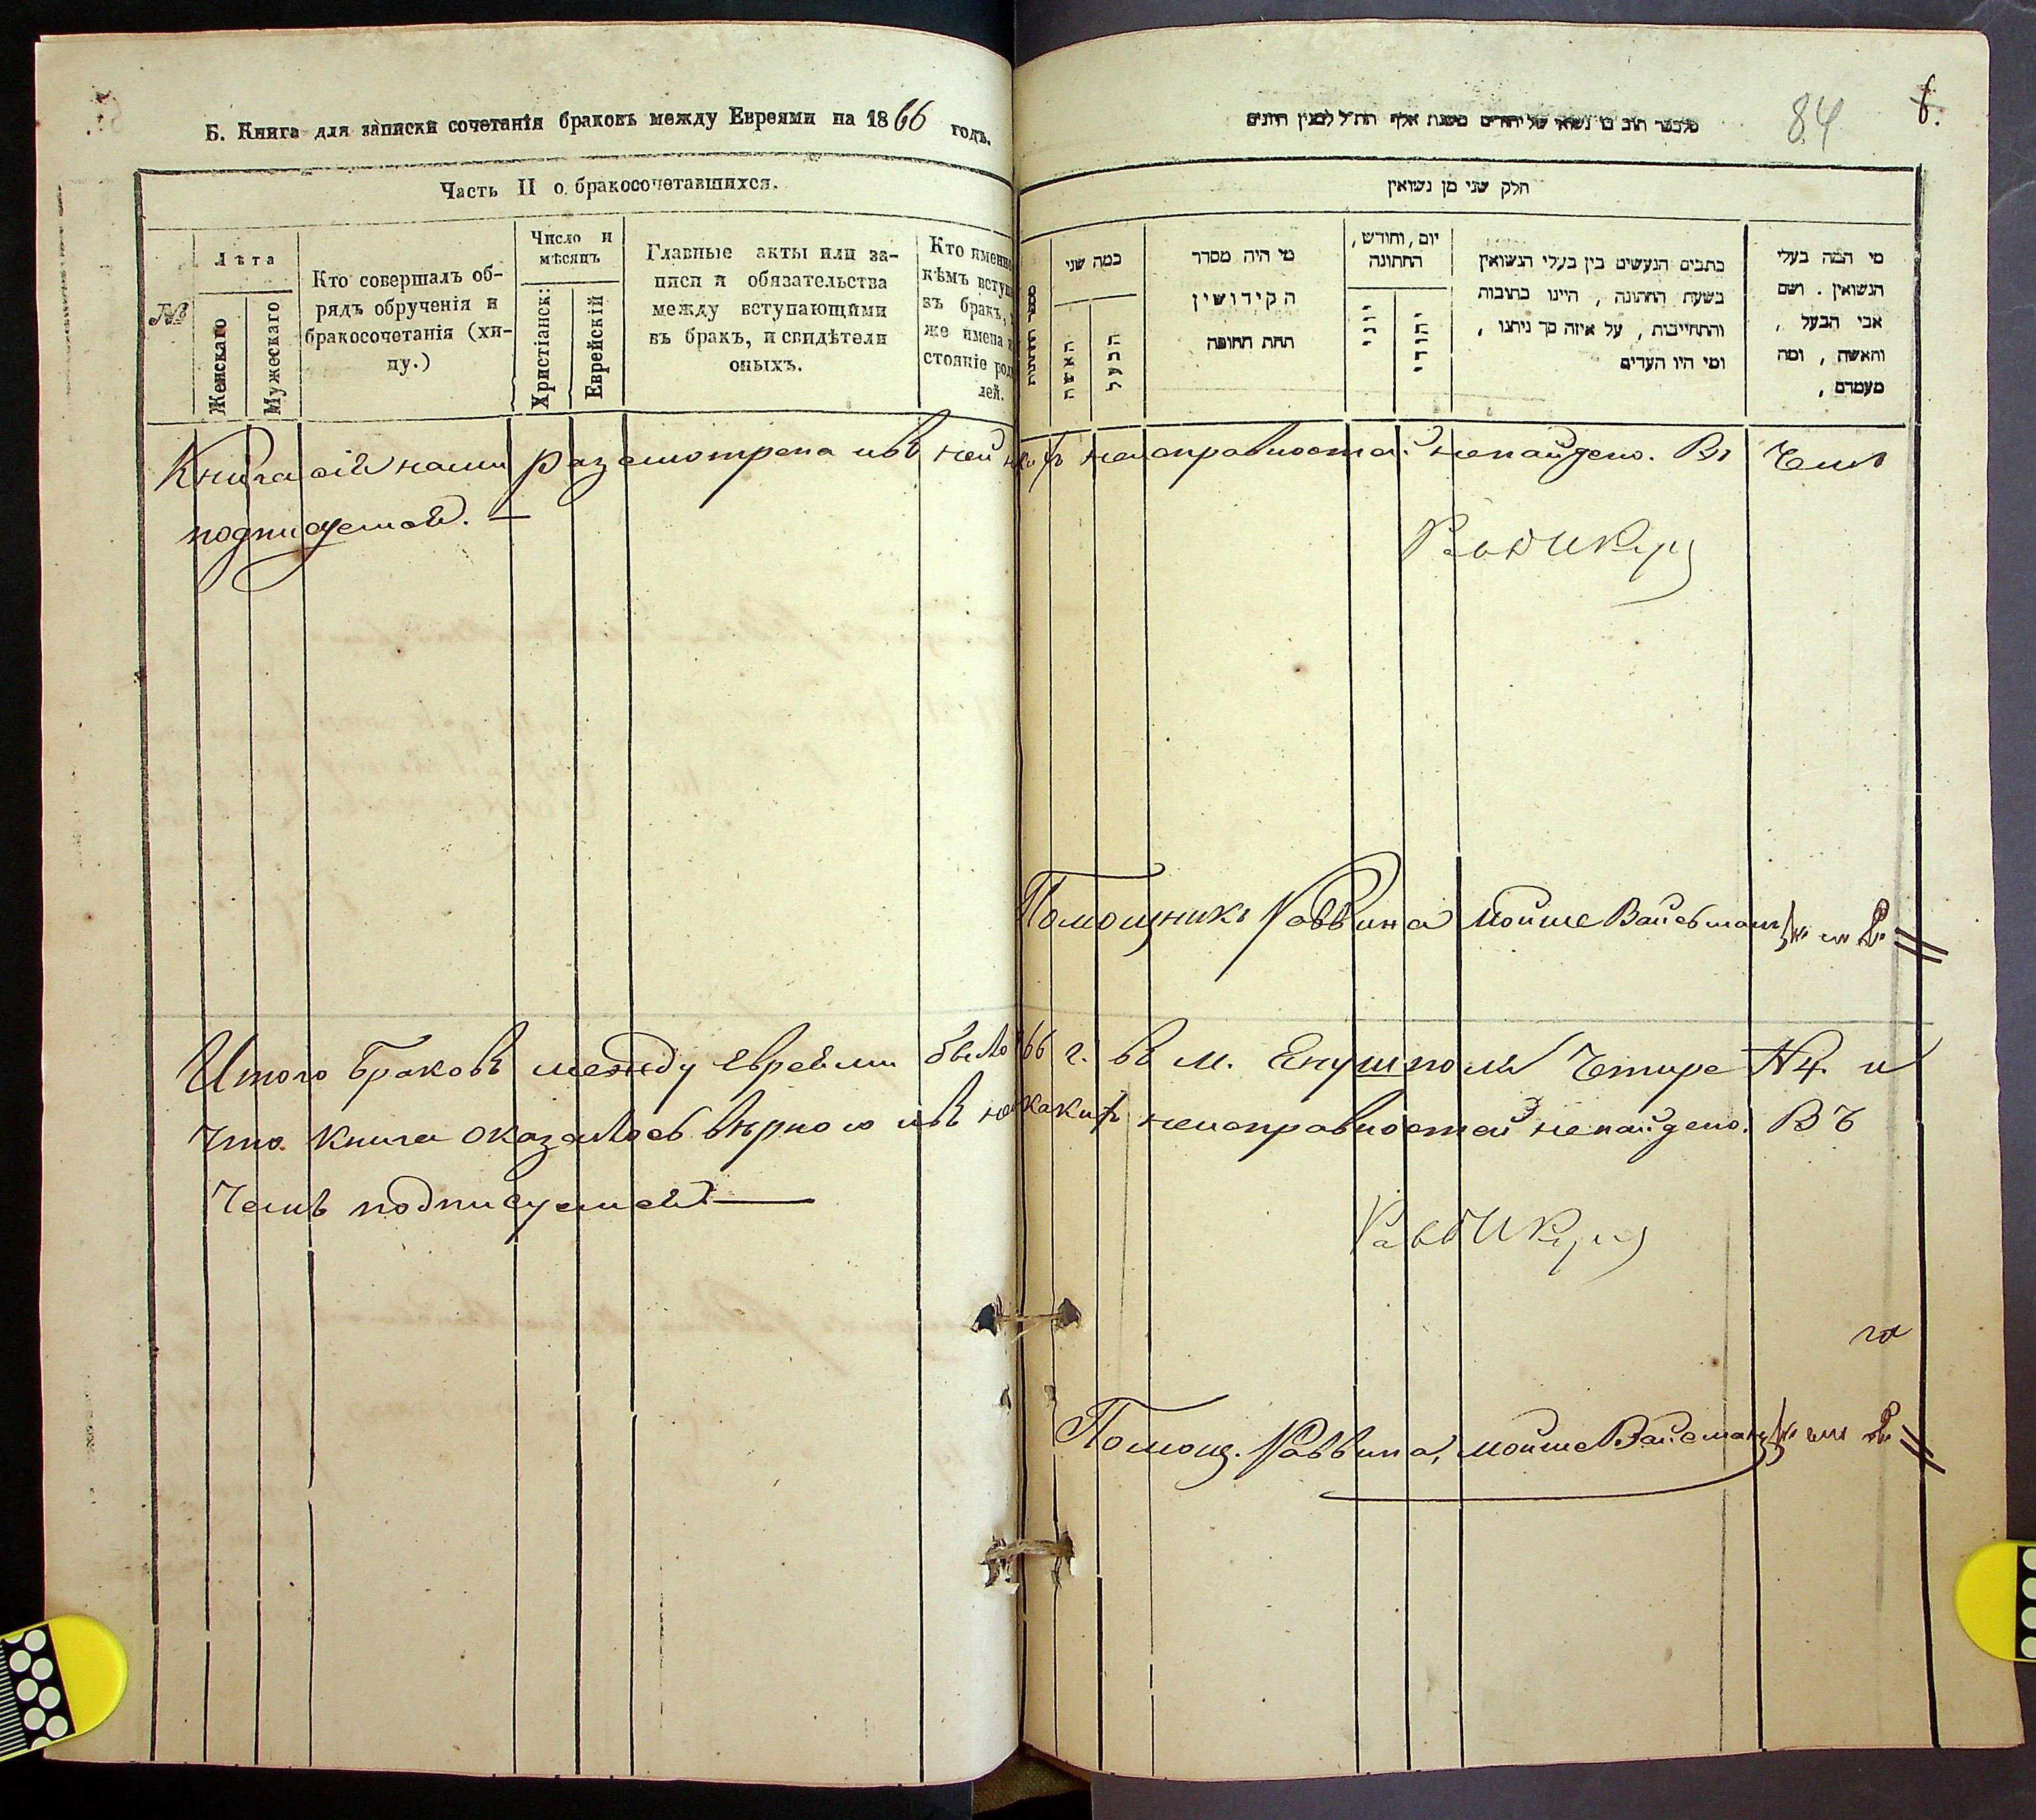 Б. Книга для записки сочетанія браковъ между Евреями на 1866 годъ.
Часть II о бракосочетавшихся.
№
Лѣта
Женскаго
Мужескаго
Кто совершалъ об-
рядъ обрученія и
бракосочетанія (хи-
пу.)
Число и
мѣсяцъ
Христіанск:
Еврейскій
Главные акты или за-
писи и обязательства
между вступающими
въ бракъ, и свидѣтели
оныхъ.
Кто именно
кѣмъ вступ
въ бракъ,
же имена и
стояніе род
лей.
84
חלק שני מן נשואין
כמה שני
האשה
הבעל
מי היה מסדר
הקידושין
תחת החופה
יום, וחודש,
החתונה
יוני
יהודי
כתבים הנעשים בין בעלי הנשואין
בשעת החתונה, היינו כתובות
והתחייבות, על איזה סך ניתנו,
ומי היו העדים
מי המה בעלי
הנשואין. ושם
אבי הבעל,
והאשה, ומה
מעמדם,
Книга сія нами разсмотрена и въ ней неисправностей ненайдено. Въ чемъ
подписуемся. —
Помощникъ Раввина Мойше Вайсманъ
Итого браковъ между евреями было 66 г. въ м. Енушполѣ Четире №4. и
что книга оказалось вѣрною и въ никакихъ неисправностей ненайдено. Въ
чемъ подписуемся —
Помощ. Раввина, Мойше Вайсманъ